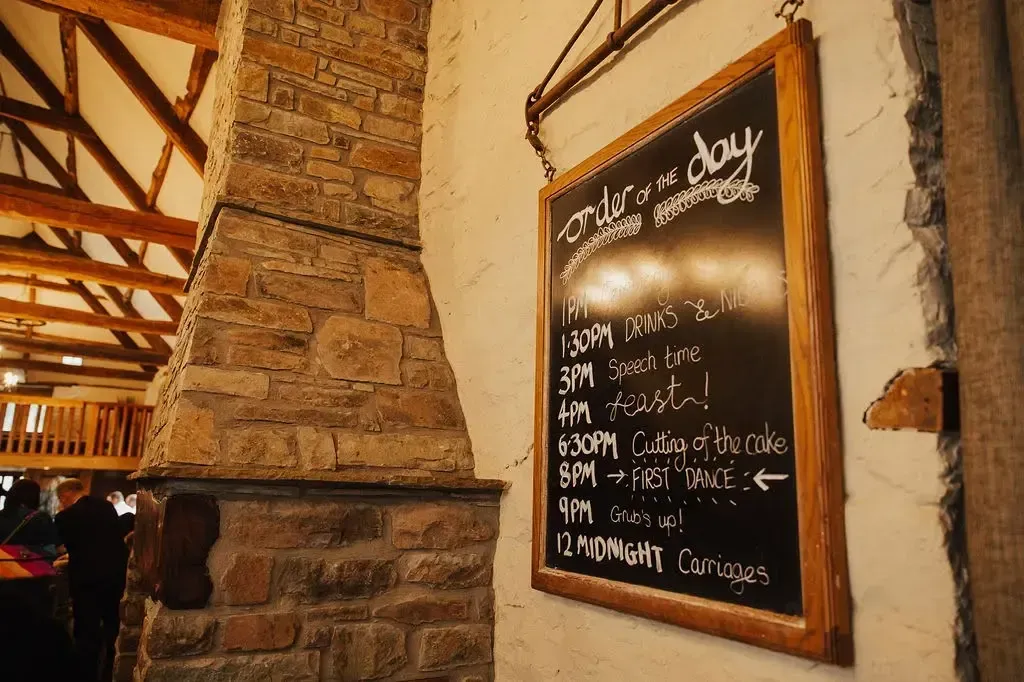 order OF THE day
1PM
1:30PM DRINKS &
3PM Speech time
4PM feast!
6:30PM Cutting of the cake
8PM → FIRST DANCE ←
9PM Grub's up!
12 MIDNIGHT Carriages